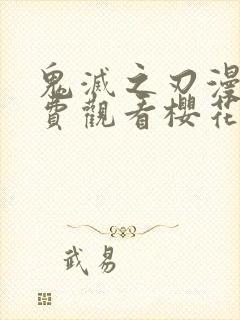 鬼滅之刃漫
費觀看櫻花
武易